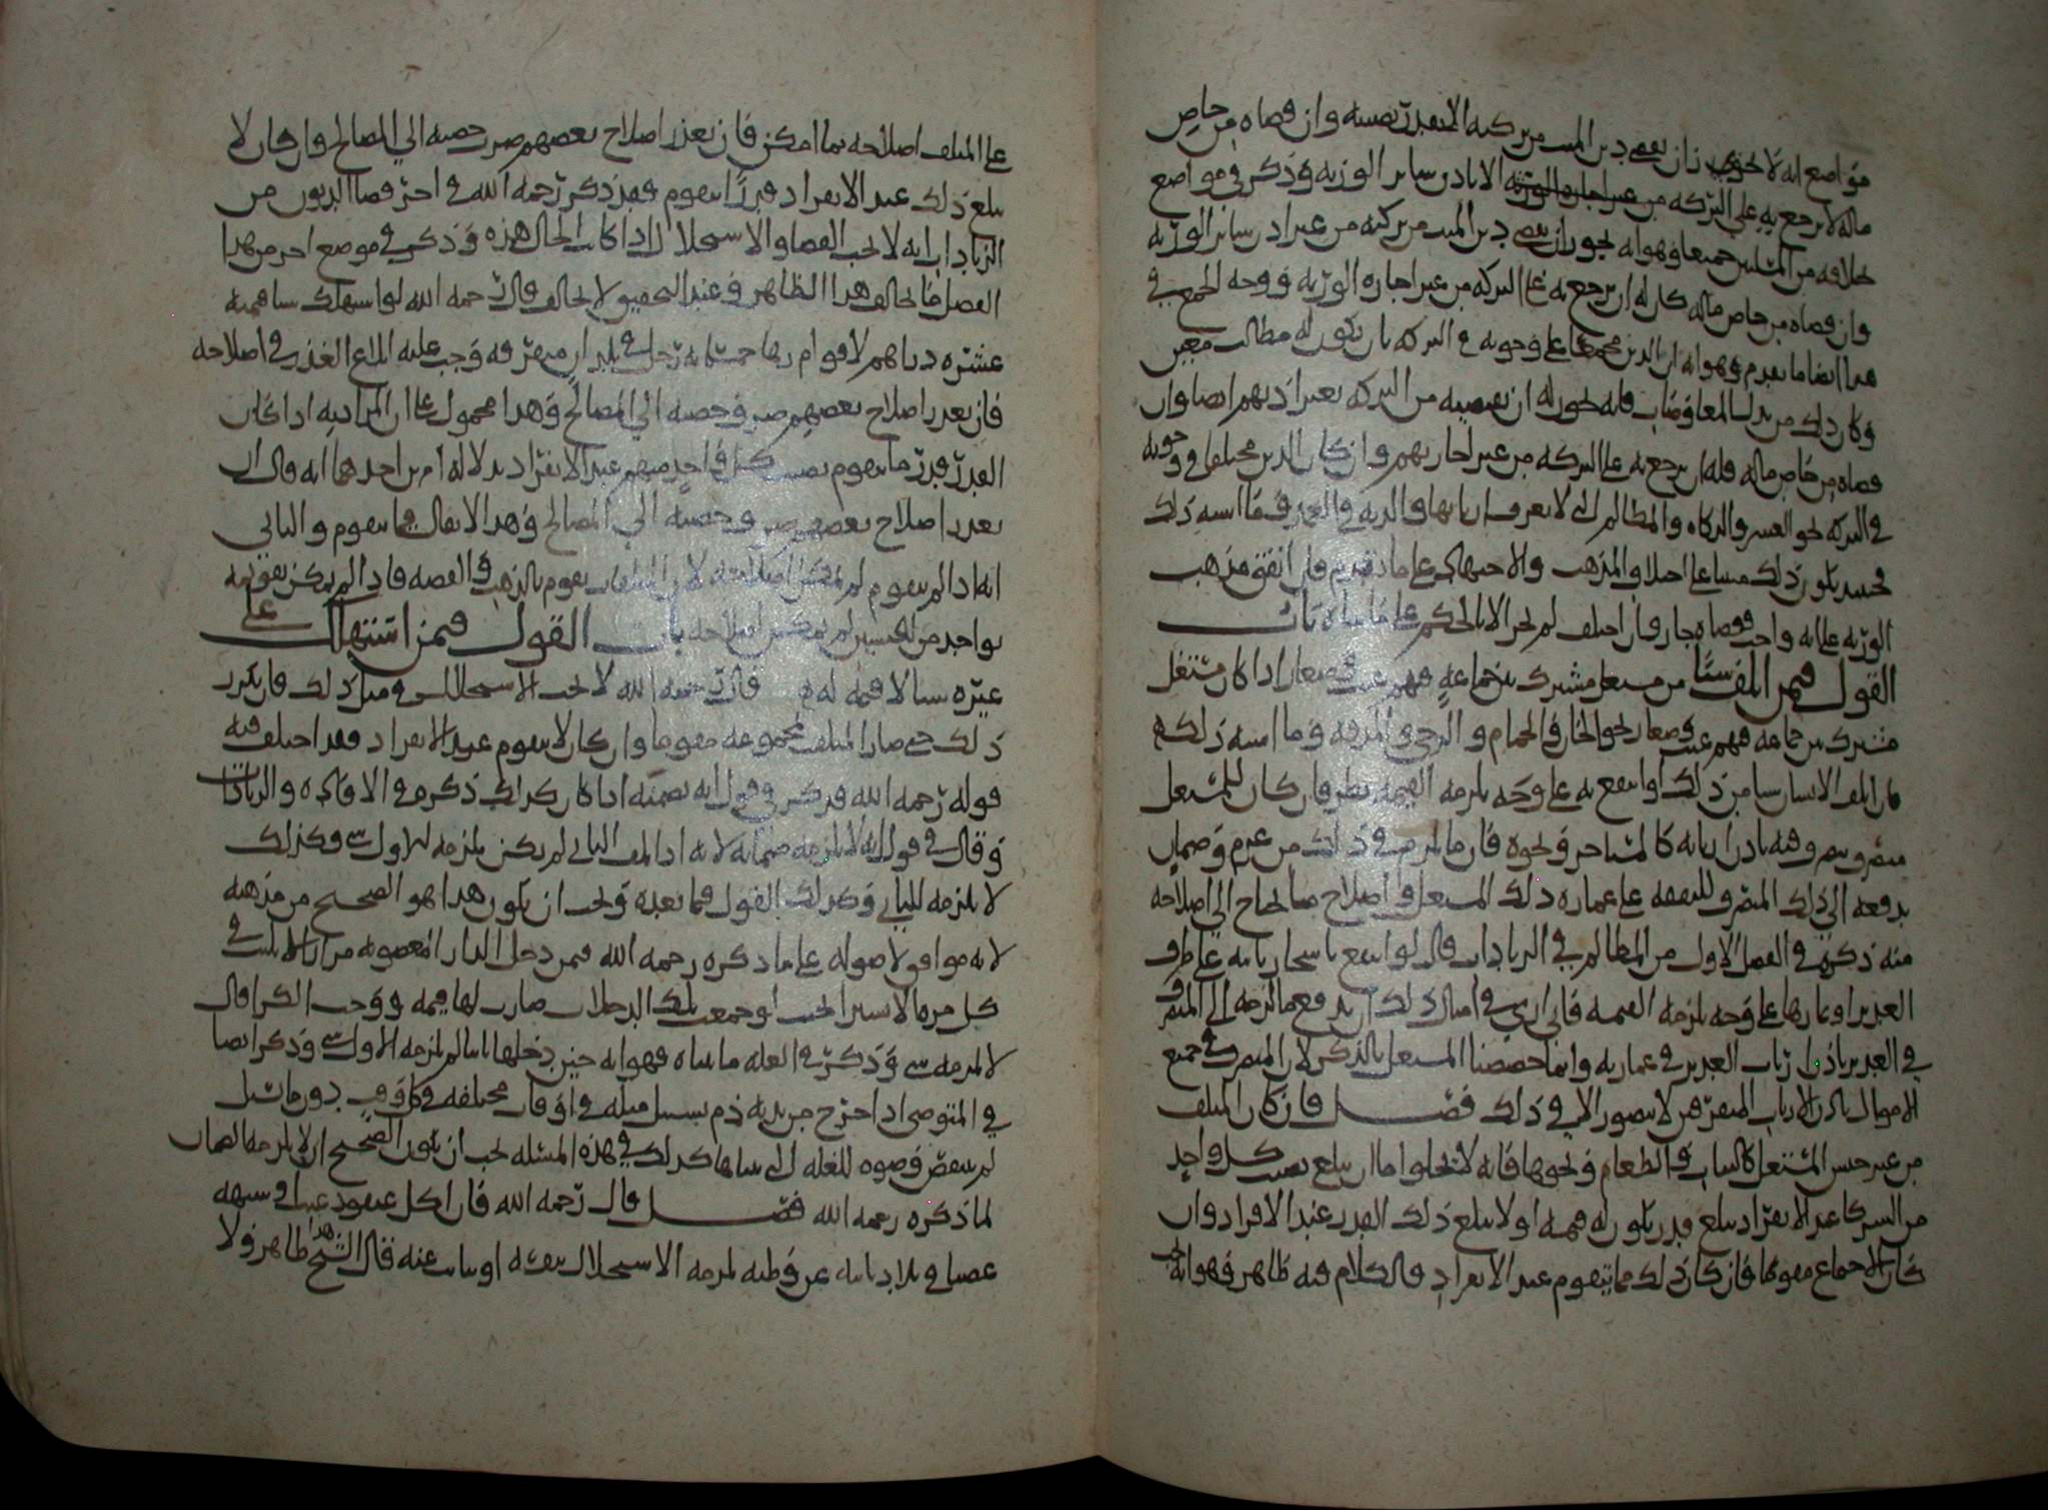 مواضع انه لا يجوز ان يقضي دين الميت من تركته الا بقدر نصيبه وان قضاه من خاص
ماله لا يرجع به على التركة من غير اجازه الورثه الا باذن سائر الورثه وذكر في مواضع
خلافه من المسلتين جميعا وهو انه يجوز ان يقضي دين الميت من تركته من غير اذن سائر الورثه
وان قضاه من خاص ماله كان له ان يرجع به على التركه من غير اجازه الورثه ووجه الجمع في
هذا ايضا ما تقدم وهو انه ان الدين مجمعا على وجوبه في التركه بان يكون له مطالب معين
وكان ذلك من بدل المعاوضات فانه يجوز له ان يقضيه من التركه بغير اذنهم ايضا وان
قضاه من خاص ماله فله ان يرجع به على التركه من غير اجازتهم وان كان الدين مختلفا في وجوبه
في التركه نحو العشر والزكاه والمظالم التي لا يعرف اربابها والديه في العمد وما اشبه ذلك
فحينئذ يكون ذلك مبنيا على اختلاف المذهب والاجتهاد على ما تقدم فان اتفق مذهب
الورثه على انه واجب فقضاه جاز وان اختلف لم يجز الا بالحكم على ما بيناه باب
القول فيمن اتلف شيئا من مستغل مشترك بين جماعة فيهم غيب وصغار اذا كان مستغل
مشترك بين جماعه فيهم غيب وصغار نحو الخان والحمام والرحى والمزرعه وما اشبه ذلك
فان اتلف الانسان شيا من ذلك او انتفع به على وجه يلزمه القيمه نظر فان كان للمستغل
متصرف يتصرف فيه باذن اربابه كالمستاجر ونحوه فان ما لزمه في ذلك من غرم وضمان
يدفعه الى ذلك المتصرف لينفقه على عماره ذلك المستغل واصلاح ما يحتاج الى اصلاحه
منه ذكره في الفصل الاول من المظالم في الزيادات قال لو انتفع باشجار نابته على طرف
الغدير او ثمارها على وجه يلزمه القيمه فاني ارى في امثال ذلك ان يدفع ما لزمه الى المتصرف
في الغدير باذن ارباب الغدير في عمارته وانما خصصنا المستغل بالذكر لان المتصرف في جميع
الاموال باذن الارباب المتفرقين لا يتصور الا في ذلك فصل فان كان المتلف
من غير جنس المستغل كالثياب والطعام ونحوها فانه لا يخلوا اما ان يبلغ نصيب كل واحد
من الشركا عند الانفراد مبلغ قدر يكون له قيمه او لا يبلغ ذلك القدر عند الافراد وان
كان الاجماع مقوما فان كان ذلك مما يتقوم عند الانفراد فالكلام فيه ظاهر وهو انه يجب
على المتلف اصلاحه بما امكن فان تعذر اصلاح بعضهم صرف حصته الى المصالح وان كان لا
يبلغ ذلك عند الانفراد قدرا يتقوم فقد ذكر رحمه الله في اخر قضا الديون من
الزيادات انه لا يجب القضا والاستحلال اذا كانت الحال هذه وذكر في موضع اخر من هذا
الفصل ما يخالف هذا الظاهر وعند التحقيق لا يخالف قال رحمه الله لو استهلك شيا قيمته
عشره دراهم لاقوام زها خمسمايه رجل في بلدان متفرقه وجب عليه ابلاغ العذر في اصلاحه
فان تعذر اصلاح بعضهم صرف حصته الى المصالح وهذا محمول على ان المراد به اذا كان
القدر قدر ما يتقوم نصيب كل واحد منهم عند الانفراد بدلاله امرين احدهما انه قال ان
تعذر اصلاح بعضهم صرف حصته الى المصالح وهذا لا يقال الا فيما يتقوم والثاني
انه اذا لم يتقوم لم يمكن اصلاحه لان المتلفات يقوم بالذهب والفضه فاذا لم يمكن تقويمه
بواحد من الجنسين لم يمكن اصلاحه باب القول فيمن استهلك على
غيره شيا لا قيمه له قال رحمه الله لا يجب الاستحلال في مثل ذلك فان تكرر
ذلك حتى صار المتلف بمجموعه مقوما وان كان لا يتقوم عند الانفراد فقد اختلف فيه
قوله رحمه الله فذكر في قول انه يضمنه اذا كان كذلك ذكره في الافاده والزيادات
وقال في قول انه لا يلزمه ضمانه لانه اذا اتلف الثاني لم يكن يلزمه للاول شي وكذلك
لا يلزمه للثاني وكذلك القول فيما بعده ويجب ان يكون هذا هو الصحيح من مذهبه
لانه موافق لاصوله على ما ذكره رحمه الله فيمن دخل الدار المغصوبه مرارا لا يلبث في
كل مره الا يسيرا بحيث لو جمعت تلك الدخلات صارت لها قيمه ووجب الكرا قال
لا يلزمه شي وذكر في العله ما بيناه وهو انه حين دخلها ثانيا لم يلزمه للاول شي وذكر ايضا
في المتوضي اذا خرج من بدنه دم يسيل مثله في اوقات مختلفه في كل وقت دون ما يسيل
لم ينتقض وضوه للعله التي بيناها كذلك في هذه المسئله يجب ان يكون الصحيح ان لا يلزمه الضمان
لما ذكره رحمه الله فصل قال رحمه الله فان اكل عنقود عنب في سنه
غصبا وبلادنا بينه عن وطنه لزمه الاستحلال بنفسه او نيابت عنه قال الشيخ هذا ظاهر ولا